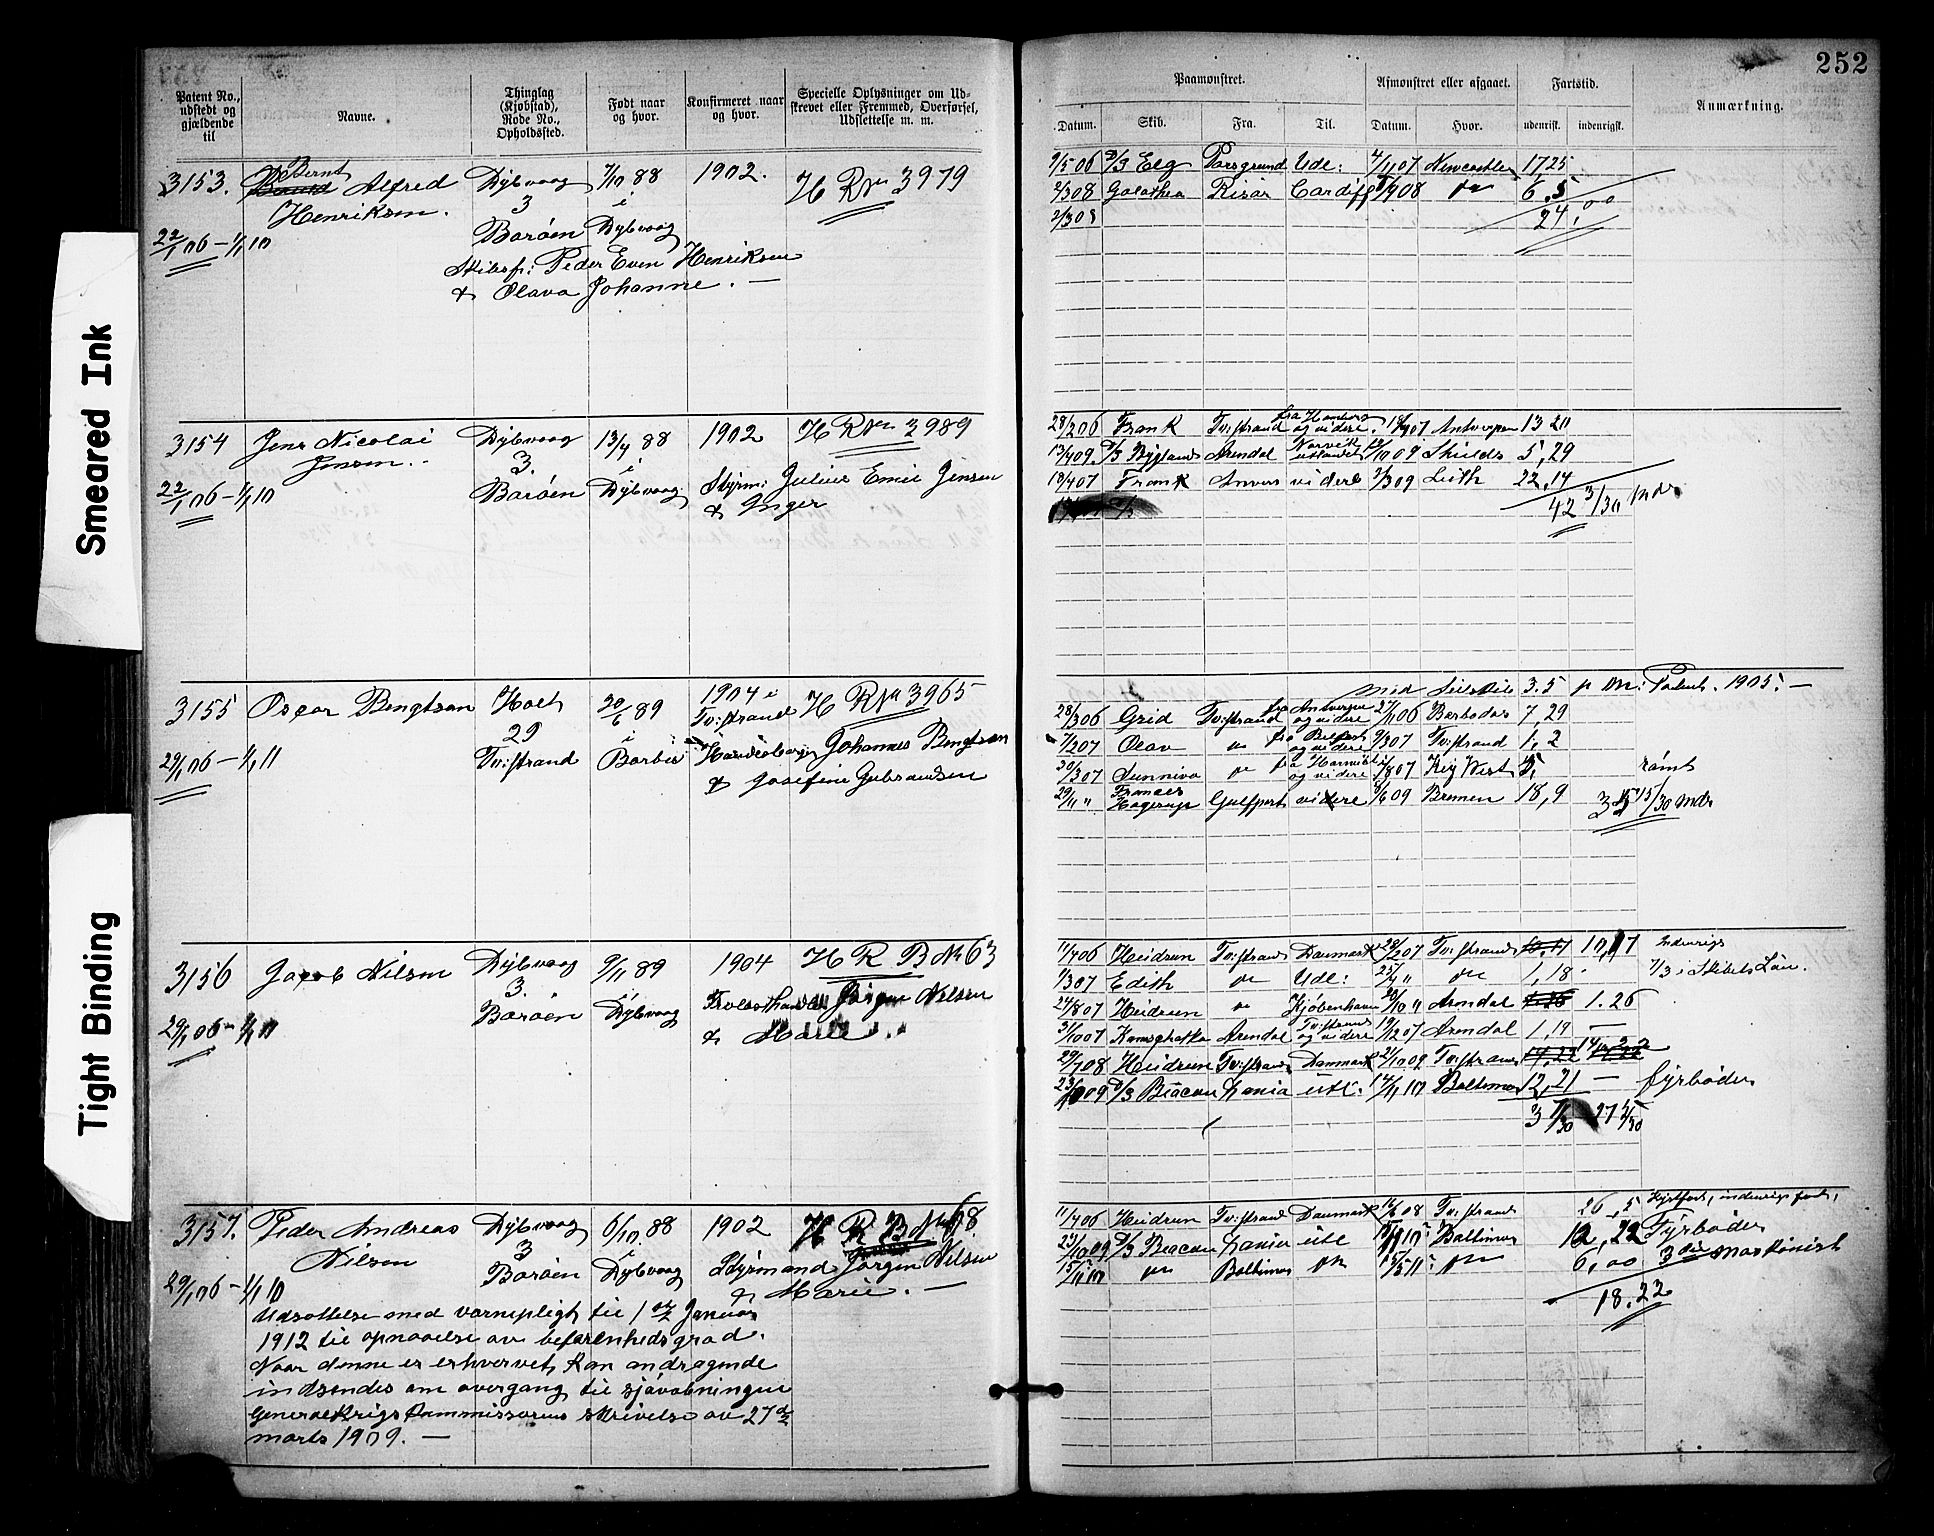 252
Smeared Ink
Tight Binding
Patent No., udstedt og gjældende til
Navne.
Thinglag (Kjøbstad), Rode No., Opholdssted.
Født naar og hvor.
Konfirmeret naar og hvor.
Specielle Oplysninger om Udskrevet eller Fremmed, Overførsel, Udslettelse m. m.
Paamønstret.
Afmønstret eller afgaaet.
Fartstid.
Anmærkning.
Datum. Skib. Fra. Til. Datum. Hvor. udenrikst. indenrigst.
3153. Bernt Alfred Dybvaag 7/10 88 1902. H R Nr 3979
Henriksen. 3 i
22/1 06 – 1/1 10 Borøen Dybvaag
Skibsf: Peder Even Henriksen
& Olava Johanne. —
9/5 06 D/S Elg Porsgrund Udl: 4/11 07 Newcastle 17 25
2/3 08 Galathea Risør Cardiff 08 do 6. 5
2/3 08 24,00
3154 Jens Nicolai Dybvaag 13/4 88 1902 H R Nr 3989
Jensen. 3. i
22/1 06 – 1/1 10 Borøen Dybvaag Styrm: Julius Emil Jensen
& Inger
28/2 06 Frank Tv:strand fra Hamborg og videre. 18/4 07 Antverpen 13 20
13/4 09 D/S Bygland Arendal Narvik utlandet 12/10 09 Shields 5, 29
18/4 07 Frank Anvers videre 3/3 09 Leith 22, 14
D/S 42 3/30 Mdr.
3155 Oscar Bengtson Holt 20/6 89 1904 i H R Nr 3965
29 i Tv:strand
29/1 06 – 1/1 11 Tv:strand Barbu Johannes Bengtson
& Josefine Gulbrandsen
3.5 Patent. 1905. —
28/3 06 Grid Tv:strand fra Antverpen og videre 27/11 06 Barbados 7, 29
7/2 07 Olav do og videre 9/3 07 Tv:strand 1, 2
20/3 07 Sunniva do og videre /8 07 Key West 5, rømt
29/11 " Francis Hagerup Gulfport videre /6 09 Bremen 18, 9 35 15/30 Mdr
3156 Jacob Nilsen Dybvaag 9/11 89 1904 H R B Nr 63
3. i
29/1 06 – 1/1 10 Borøen Dybvaag Jørgen Nilsen
& Marie.
11/4 06 Heidrun Tv:strand Danmark 28/2 07 Tv:strand 10, 17 Indenrigs
7/3 07 Edith do Udl: 25/4 " do 1, 18 7/3 i Skibets Løn.
24/8 07 Heidrun do Kjøbenhavn 20/10 " Arendal 1. 26
31/10 07 Kamschatka Arendal Tv:strand og videre 19/12 07 Arendal 1, 19 —
29/7 08 Heidrun Tv:strand Danmark 21/10 09 Tv:strand 14, 22
23/10 09 D/S Beacon Lania utl: 14/11 10 Baltimore 12, 21 — fyrbøder
3157. Peder Andreas Dybvaag 6/10 88 1902 H R B Nr 68
Nilsen 3 i
29/1 06 – 1/1 10 Borøen Dybvaag Styrmand Jørgen Nilsen
& Marie. —
Udsættelse med værnepligt til 1ste Januar
1912 til opnaaelse av befarenhedsgrad.
Naar denne er erhvervet, kan andragende
indsendes om overgang til sjøvæbningen
Generalkrigskommissærens skrivelse av 27de
marts 1909. —
11/4 06 Heidrun Tv:strand Danmark 14/6 08 Tv:strand 26, 5 Kystfart, indenrigs fart,
23/10 09 D/S Beacon Lania utl 15/11 10 Baltimore 12, 22 Fyrbøder
15/11 10 do Baltimore do 15/5 11 do 6, 00 3die maskinist
18. 22